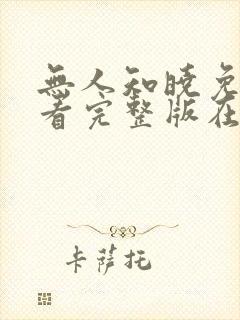 無人知曉免
看完整版在
卡薩托